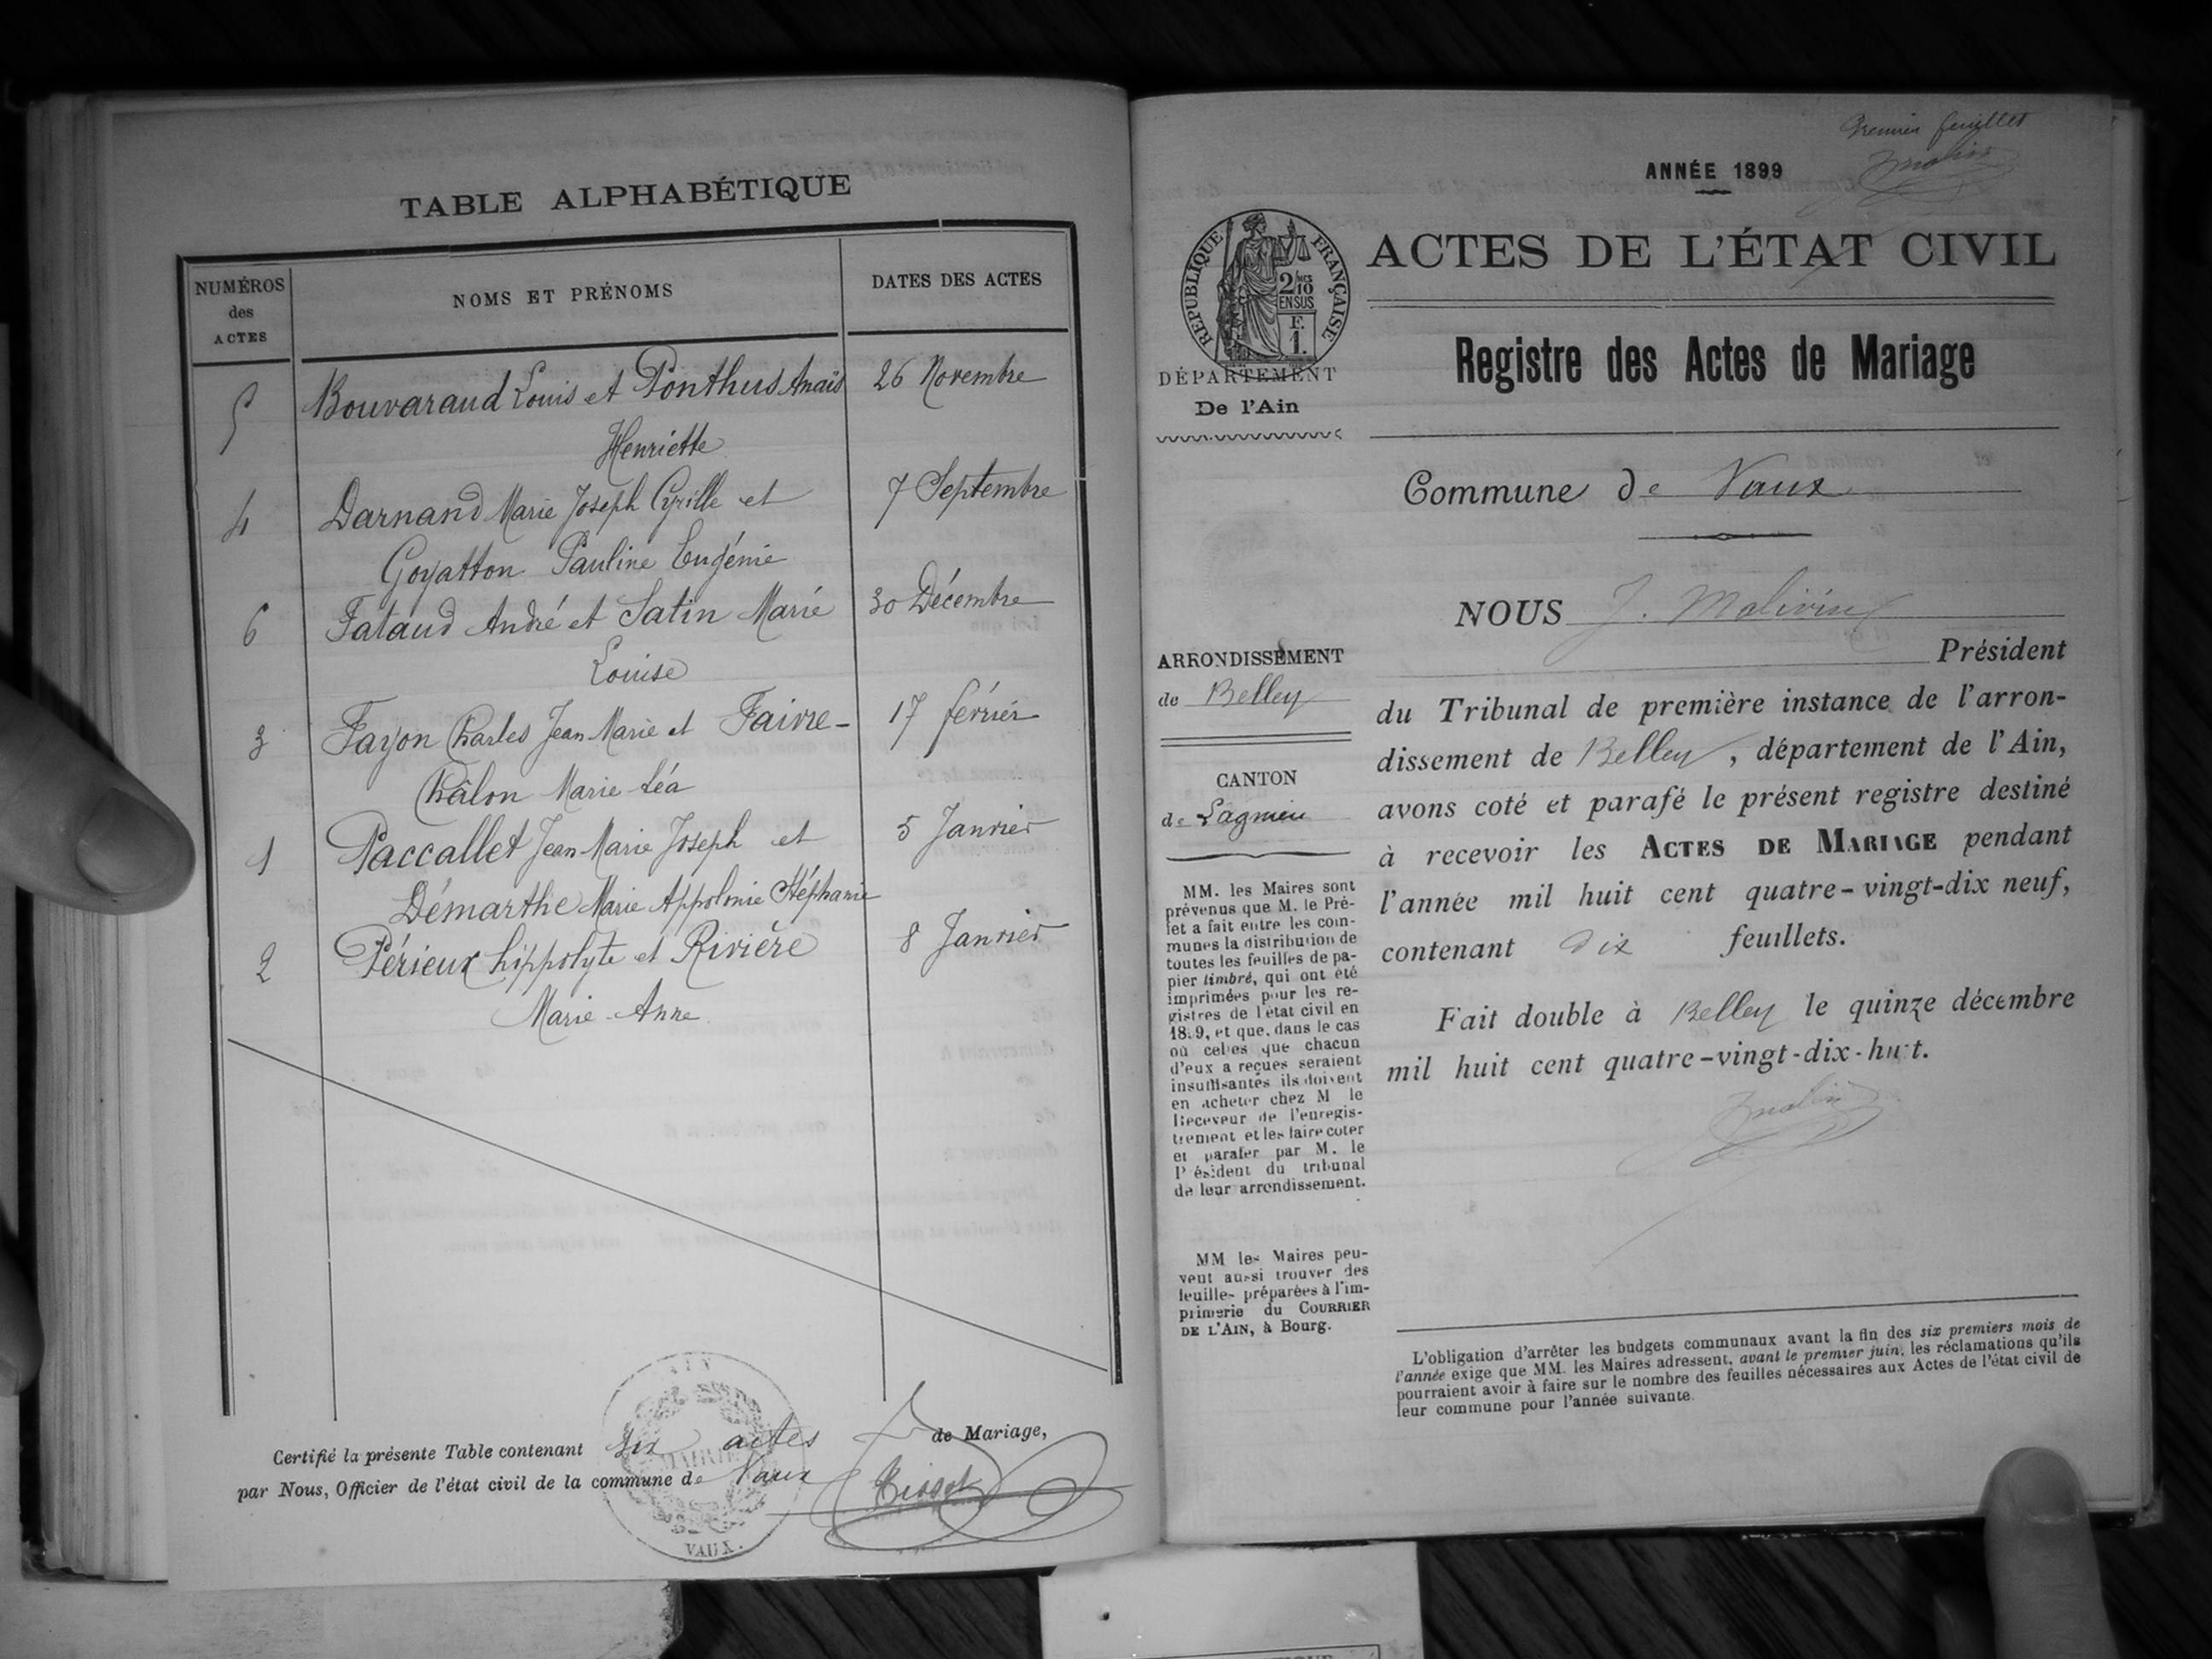 TABLE ALPHABÉTIQUE
NUMÉROS des ACTES
NOMS ET PRÉNOMS
DATES DES ACTES
5 Bouvaraud Louis et Ponthus Anaïs 26 Novembre
Henriette
4 Darnand Marie Joseph Cyrille et 7 Septembre
Goyatton Pauline Eugénie
6 Fataud André et Satin Marie 30 Décembre
Louise
3 Fayon Charles Jean-Marie et Faivre- 17 février
Châlon Marie-Léa
1 Paccallet Jean-Marie Joseph et 5 Janvier
Démarthe Marie Appolonie Stéphanie
2 Périeux hippolyte et Rivière 8 Janvier
Marie-Anne
Certifié la présente Table contenant six actes de Mariage,
par Nous, Officier de l'état civil de la commune de Vaux
Tissot
AIN
MAIRIE
VAUX.
Premier feuillet
ANNÉE 1899
RÉPUBLIQUE FRANÇAISE
2/10
EN SUS
F.
1.
ACTES DE L'ÉTAT CIVIL
DÉPARTEMENT
De l'Ain
Registre des Actes de Mariage
Commune de Vaux
NOUS J.
Président
ARRONDISSEMENT
de Belley
CANTON
de Lagnieu
du Tribunal de première instance de l'arron-
dissement de Belley, département de l'Ain,
avons coté et parafé le présent registre destiné
à recevoir les ACTES DE MARIAGE pendant
l'année mil huit cent quatre-vingt-dix neuf,
contenant dix feuillets.
Fait double à Belley le quinze décembre
mil huit cent quatre-vingt-dix-huit.
MM. les Maires sont
prévenus que M. le Pré-
fet a fait entre les com-
munes la distribution de
toutes les feuilles de pa-
pier timbré, qui ont été
imprimées pour les re-
gistres de l'état civil en
1899, et que, dans le cas
où celles que chacun
d'eux a reçues seraient
insuffisantes ils doivent
en acheter chez M le
Receveur de l'enregis-
trement et les faire coter
et parafer par M. le
Président du tribunal
de leur arrondissement.
MM les Maires peu-
vent aussi trouver des
feuilles préparées à l'im-
primerie du COURRIER
DE L'AIN, à Bourg.
L'obligation d'arrêter les budgets communaux avant la fin des six premiers mois de
l'année exige que MM. les Maires adressent, avant le premier juin, les réclamations qu'ils
pourraient avoir à faire sur le nombre des feuilles nécessaires aux Actes de l'état civil de
leur commune pour l'année suivante.